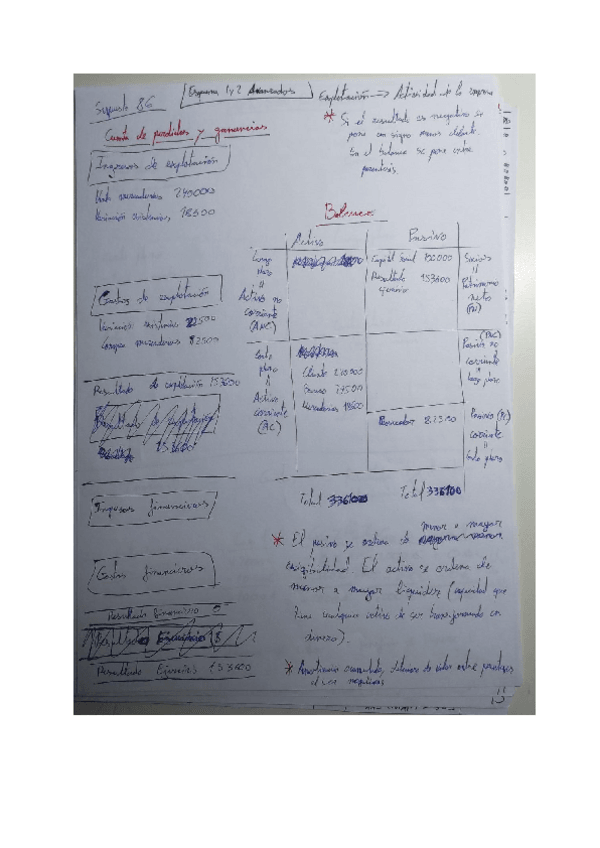 Supuesto 8G
Esquema 1 y 2
Explotación => Actividad de la empresa
* Si el resultado es negativo se
pone con signo menos delante.
En el balance se pone entre
paréntesis.
Cuenta de perdidas y ganancias
Ingresos de explotación
Venta mercaderias
Variación existencias, 18500
Gastos de explotación
Variación existencias
Compra mercaderias 82500
Resultado de explotación 153600
153600
Ingresos financieros
Gastos financieros
Resultado financiero 0
Resultado Ejercicio 153600
Balance
Activo
Pasivo
Largo
plazo
=
Activo no
corriente
(ANC)
Corto
plazo
=
Activo
corriente
(AC)
Cliente
Banco
Mercaderias
Total
Capital Social 100000
Resultado 153600
Ejercicio
Proveedor
Total
Socios
=
Patrimonio
neto
(PN)
(PNC)
Pasivo no
corriente
=
largo plazo
Pasivo (PC)
corriente
=
Corto plazo
* El pasivo se ordena de menor a mayor
exigibilidad. El activo se ordena de
menor a mayor liquidez (capacidad que
tiene cualquier activo de ser transformado en
dinero).
* Amortización acumulada, deterioro de valor entre parentesis
negativas